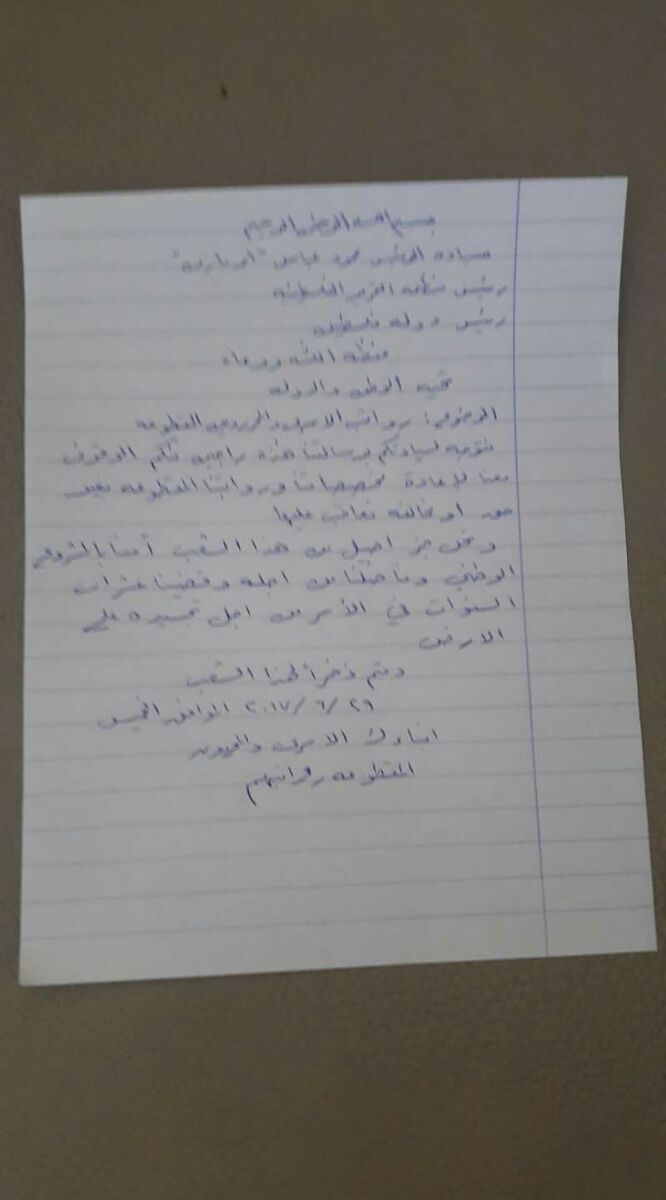 بسم الله الرحمن الرحيم
سيادة الرئيس محمود عباس "ابو مازن"
رئيس منظمة التحرير الفلسطينية
رئيس دولة فلسطين
حفظه الله ورعاه
تحية الوطن والدولة
الموضوع: رواتب الاسرى والمحررين المقطوعة
نتوجه لسيادتكم برسالتنا هذه راجين منكم الوقوف
معنا لإعادة مخصصاتنا ورواتبنا المقطوعة بغير
او مخالفة نعاقب عليها
ونحن جزء اصيل من هذا الشعب آمنا بالمشروع
الوطني وناضلنا من اجله وقضينا عشرات
السنوات في الأسر من اجل تجسيده على
الارض
دمتم ذخراً لهذا الشعب
٢٠١٧/٦/٢٩ الموافق الخميس
ابناءك الاسرى والمحررون
المقطوعة رواتبهم